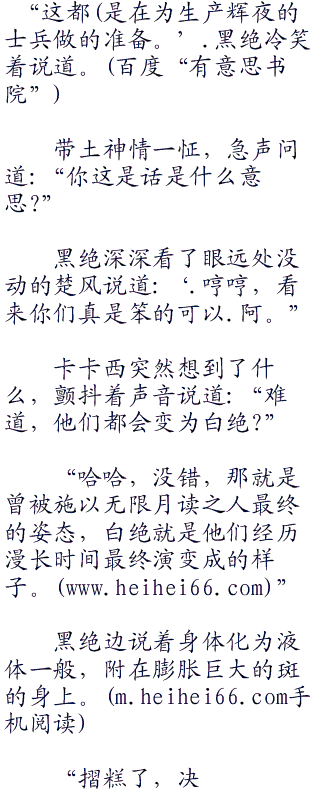 “这都(是在为生产辉夜的
士兵做的准备。’.黑绝冷笑
着说道。(百度“有意思书
院”)
带土神情一怔，急声问
道：“你这是话是什么意
思？”
黑绝深深看了眼远处没
动的楚风说道：‘.哼哼，看
来你们真是笨的可以.阿。”
卡卡西突然想到了什
么，颤抖着声音说道：“难
道，他们都会变为白绝？”
“哈哈，没错，那就是
曾被施以无限月读之人最终
的姿态，白绝就是他们经历
漫长时间最终演变成的样
子。(www.heihei66.com)”
黑绝边说着身体化为液
体一般，附在膨胀巨大的斑
的身上。(m.heihei66.com手
机阅读)
“摺糕了，决